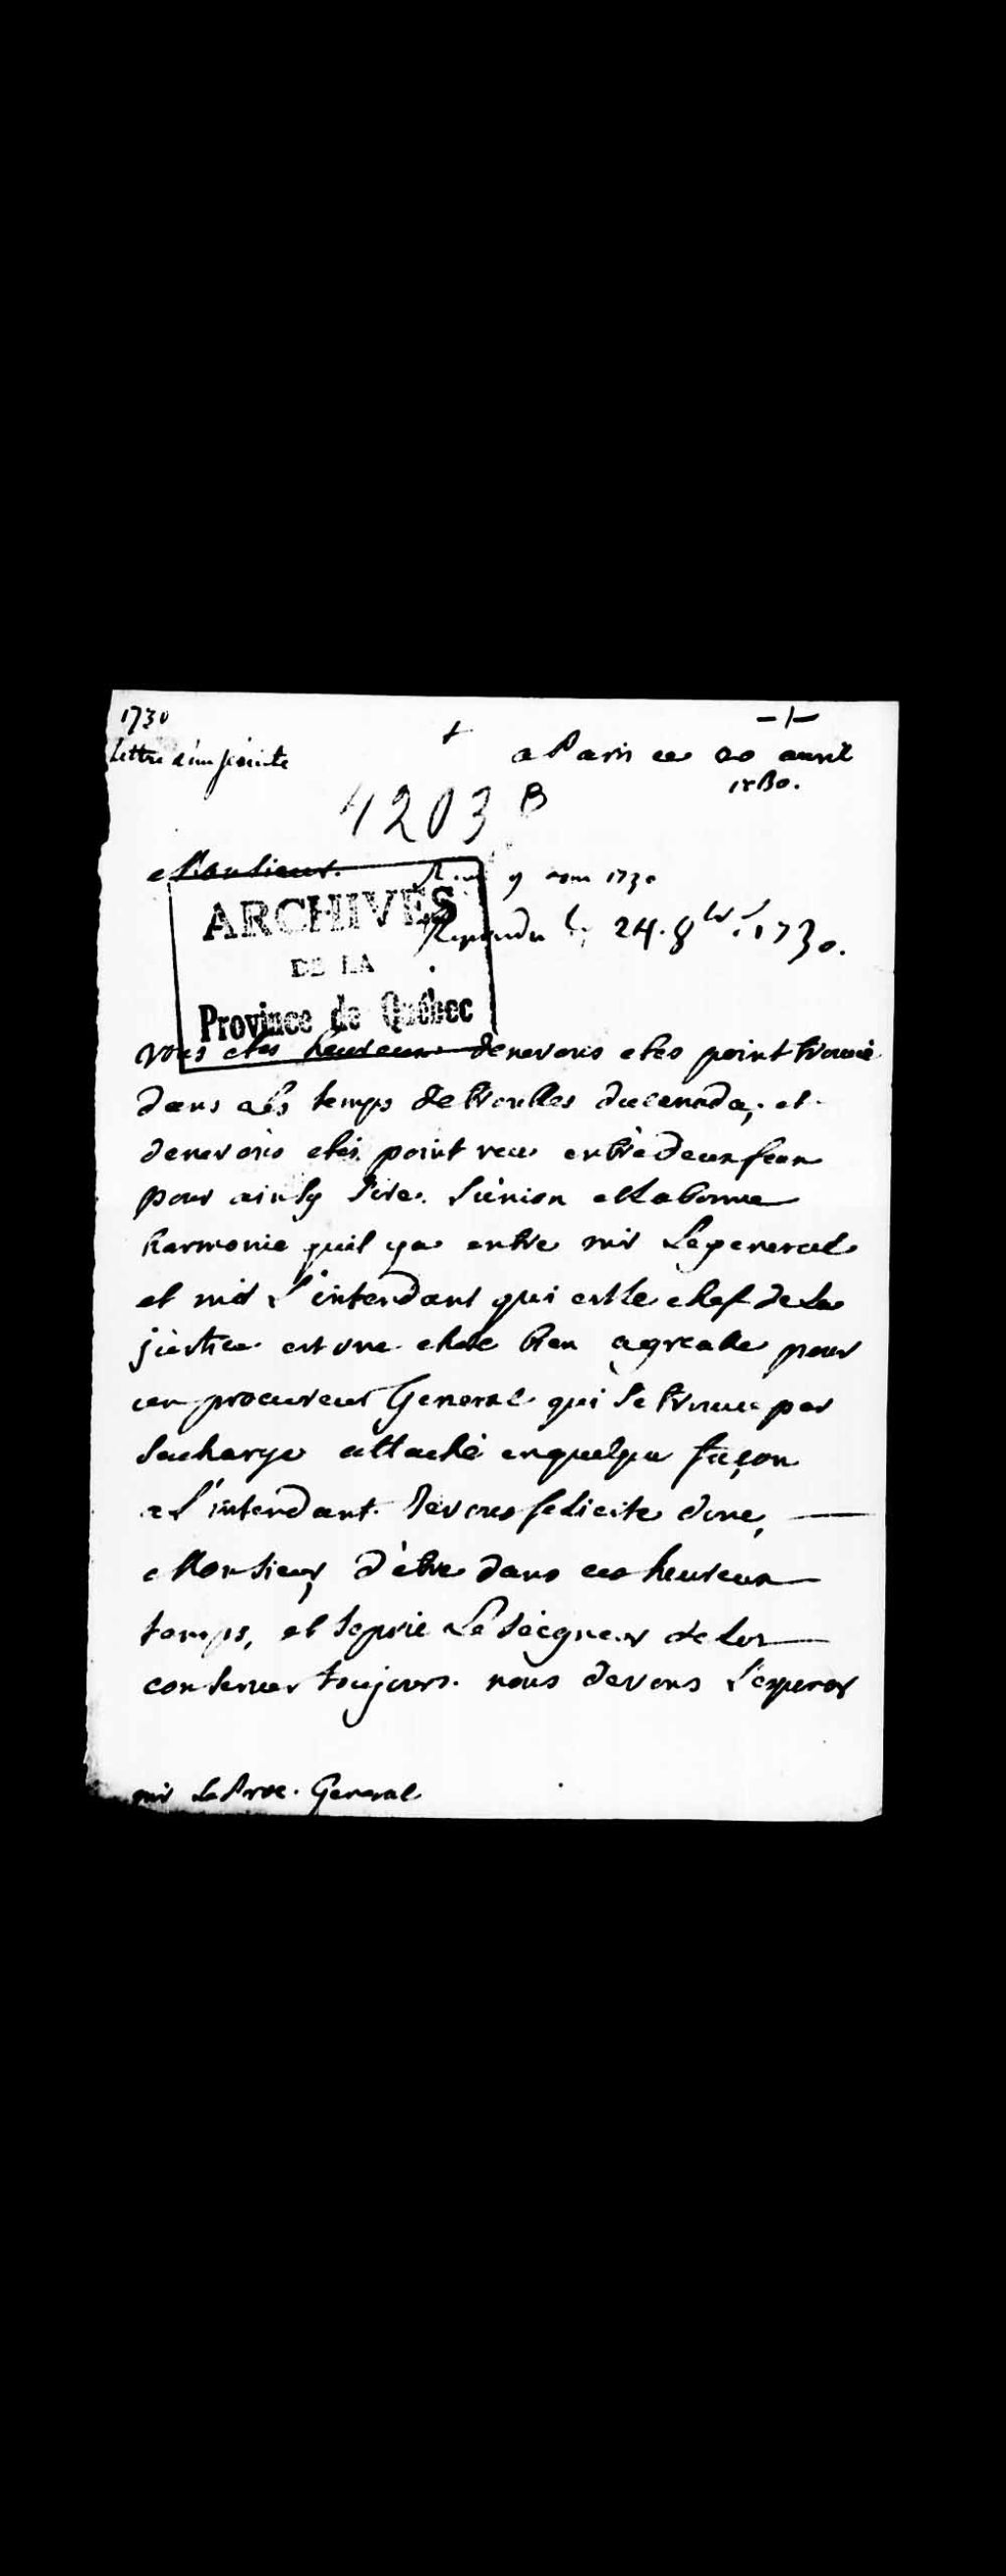 1730
-1-
Lettre d'un jesuite
+
a Paris ce 20 avril
1730.
4203 B
Monsieur.
9 1730
ARCHIVES
Repondu le 24. 8bre 1730.
DE LA
Province de Québec
vous etes heureux de ne vous etes point trouvé
dans les temps de troubles du canada, et
de ne vous etes point veu entre deux feux
pour ainsy dire. L'union et la bonne
harmonie quil y a entre mr Le general
et mr L'intendant qui est le chef de la
justice est une chose bien agreable pour
un procureur General qui se trouve par
sa charge attaché en quelque façon
a L'intendant. Je vous felicite donc,
Monsieur, d'être dans ces heureux
temps, et je prie Le seigneur de les
conserver toujours. nous devons L'esperer
mr Le Proc. General